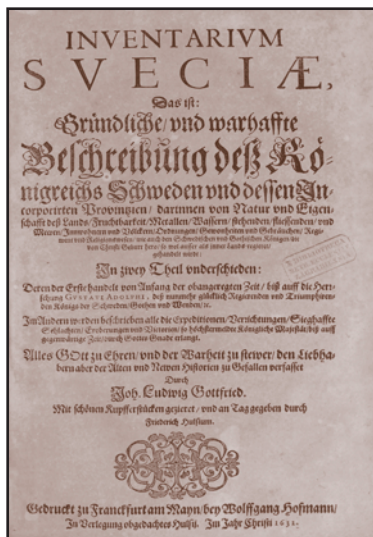 INVENTARIVM
SVECIÆ,
Das ist:
Gründliche/ vnd warhaffte
Beschreibung deß Kö-
nigreichs Schweden vnd dessen In-
corporirten Provintzien/ darinnen von Natur vnd Eigen-
schafft deß Lands/ Fruchtbarkeit/ Metallen/ Wassern/ stehenden/ fliessenden/ vnd
Meeren/ Innwohnern vnd Völckern/ Ordnungen/ Gewonheiten vnd Gebräuchen/ Regi-
ment vnd Religionswesen/ wie auch den Schwedischen vnd Gothischen Königen
von Christi Geburt hero/ so wol ausser als inner Lands regieret/
gehandelt wirdt:
In zwey Theil vnderschieden:
Deren der Erste handelt von Anfang der obangeregten Zeit/ biß auff die Herr-
schung GUSTAVI ADOLPHI, deß nunmehr glücklich Regierenden vnd Triumphiren-
den Königs der Schweden/ Gothen vnd Wenden/ &c.
Im Andern werden beschrieben alle die Expeditionen/ Verrichtungen/ Sieghaffte
Schlachten/ Eroberungen vnd Victorien/ so höchstermelter Königliche Majestät/ biß auff
gegenwärtige Zeit/ durch Gottes Gnade erlangt.
Alles GOtt zu Ehren/ vnd der Warheit zu stewer/ den Liebha-
bern aber der Alten vnd Newen Historien zu Gefallen verfasset
Durch
Joh. Ludwig Gottfried.
Mit schönen Kupfferstücken gezieret/ vnd an Tag gegeben durch
Friederich Hulsium.
Gedruckt zu Franckfurt am Mayn/ bey Wolffgang Hofmann/
In Verlegung obgedachtes Hulsii. Im Jahr Christi 1632.